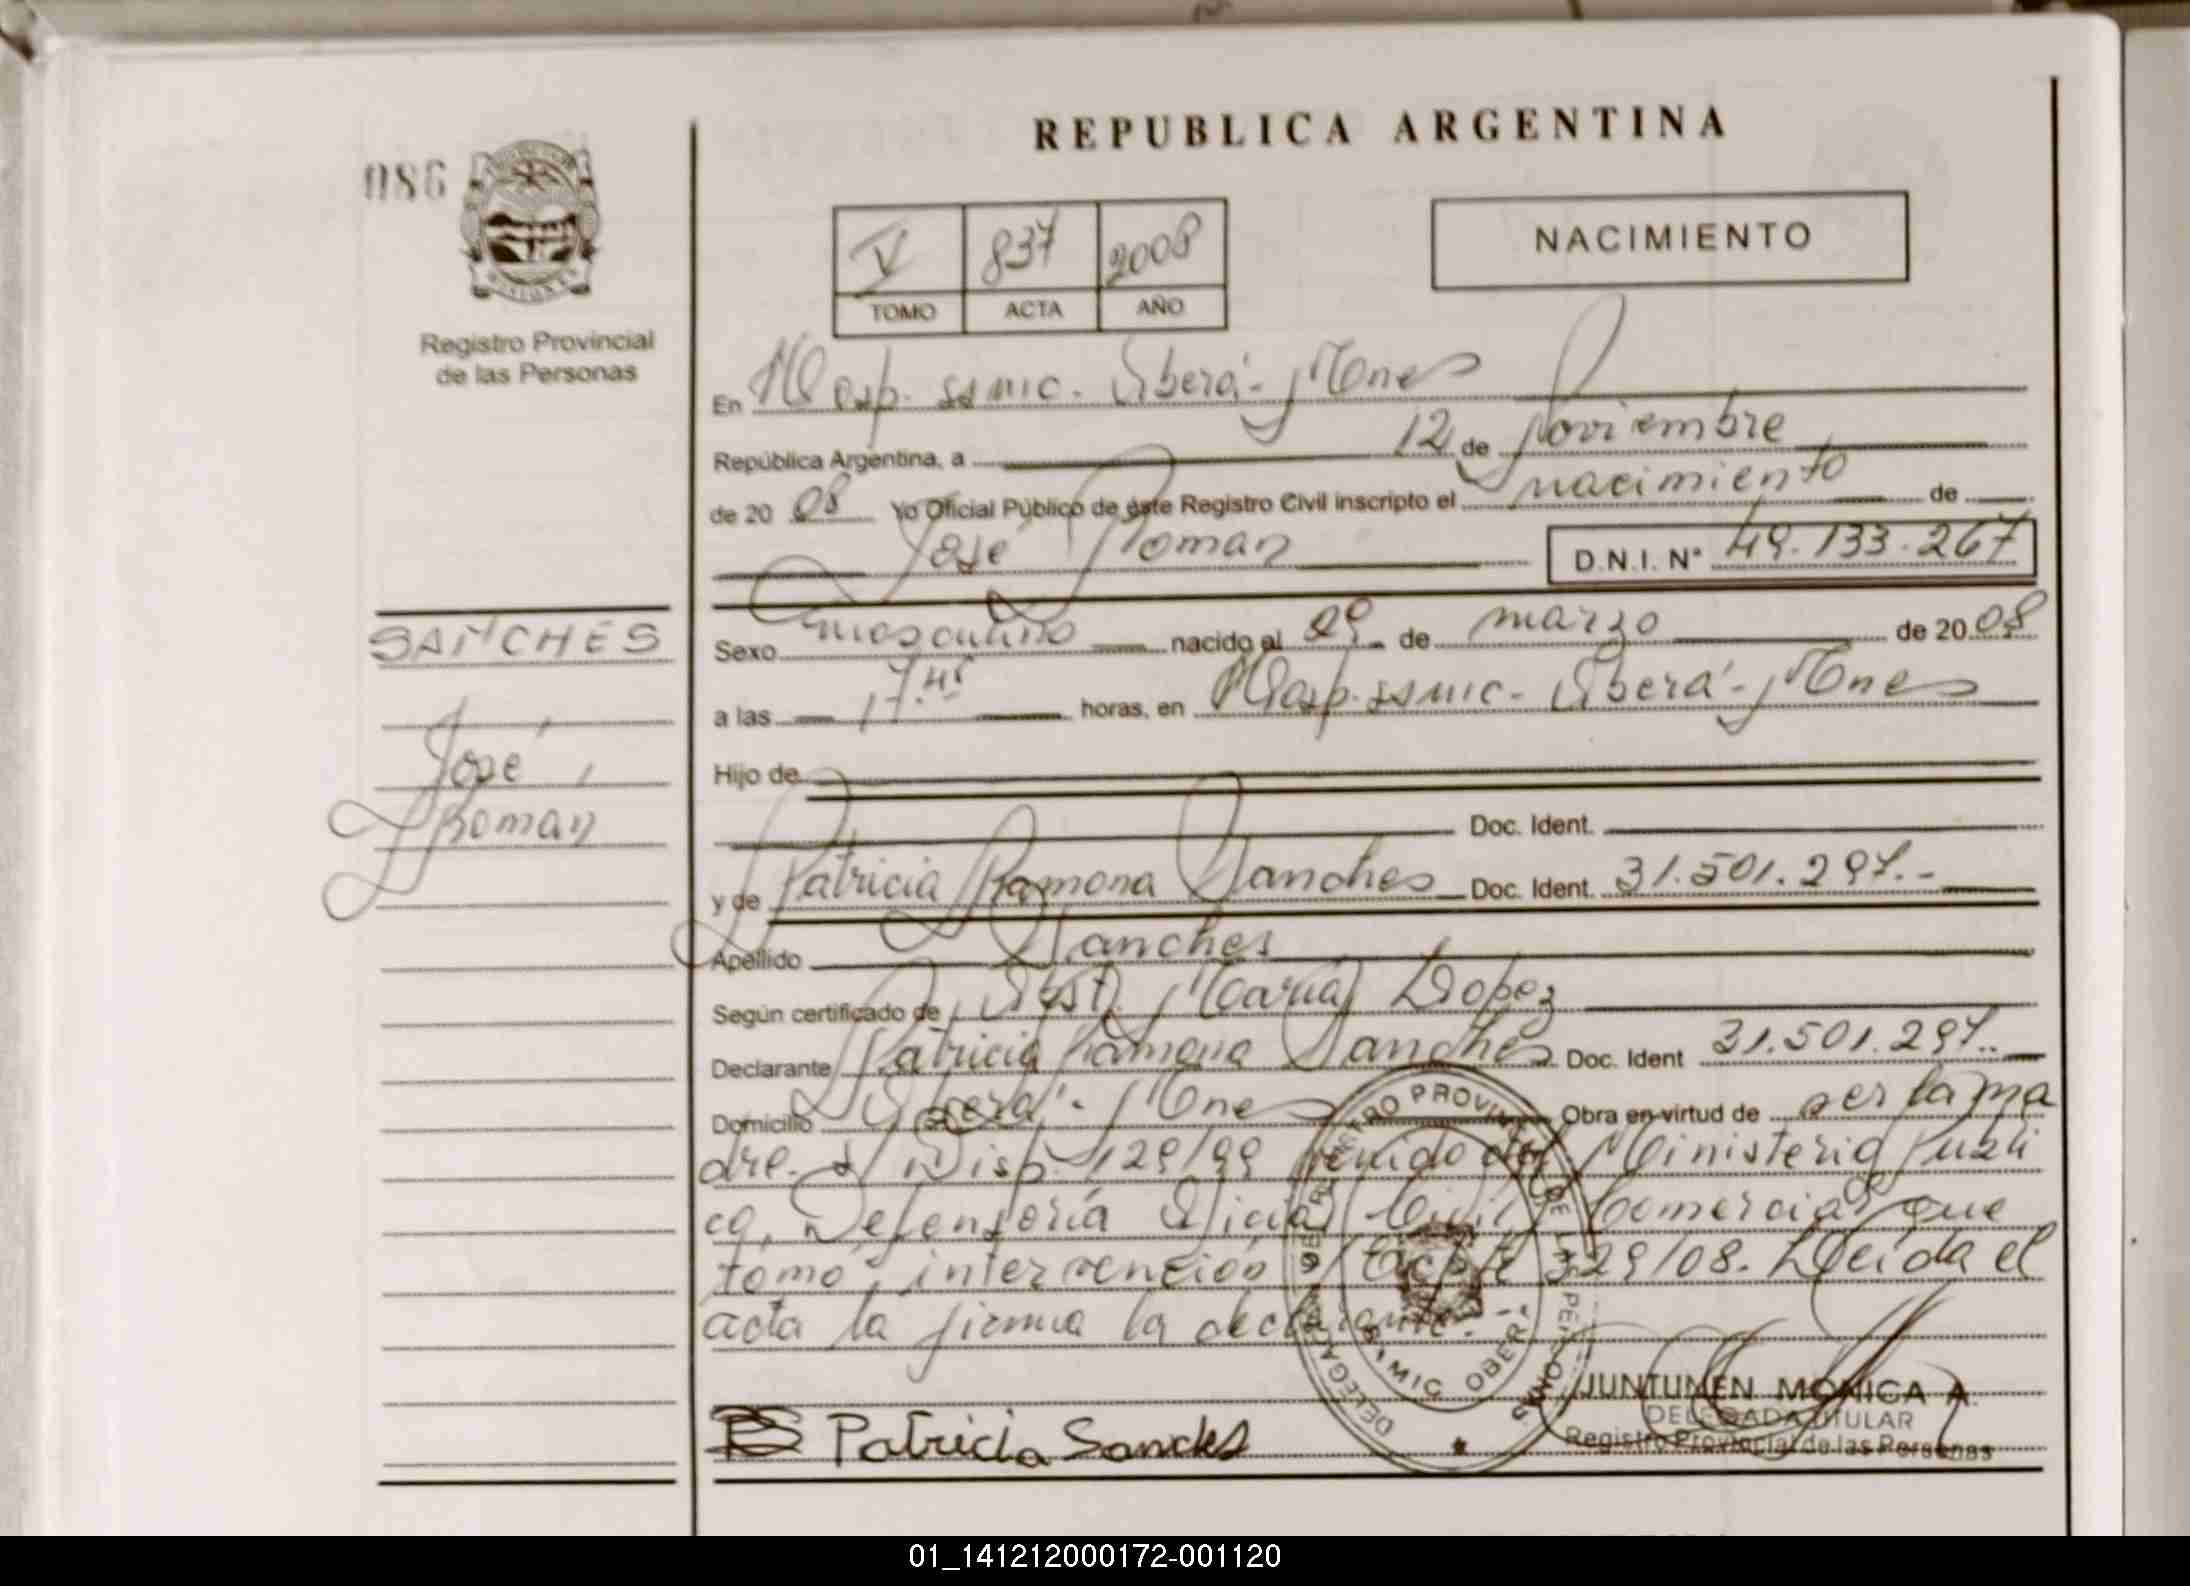 REPUBLICA ARGENTINA
086
V 837 2008
TOMO ACTA AÑO
NACIMIENTO
Registro Provincial
de las Personas
En Hosp. SSMIC. Oberá - Mnes
República Argentina, a 12 de Noviembre
de 20 08 Yo Oficial Público de éste Registro Civil inscripto el nacimiento de
José Roman D.N.I. N° 49.133.267
SANCHES
José
Roman
Sexo masculino nacido el 09 de marzo de 20 08
a las 17.45 horas, en Hosp. SSMIC - Oberá - Mnes
Hijo de
Doc. Ident.
y de Patricia Ramona Sanches Doc. Ident. 31.501.297.-
Apellido Sanches
Según certificado de Obst. Maria Lopez
Declarante Patricia Ramona Sanches Doc. Ident 31.501.297.
Domicilio Oberá - Mnes Obra en virtud de ser la ma
dre. Disp. 129/99 Ministerio Publi
co, Defensoría Oficial Civil Comercial que
tomó intervención Expte 329/08. Leída el
acta la firma la declarante.-
DELEGADA DEL REGISTRO PROVINCIAL DE LAS PERSONAS
OBERA
Patricia Sanches
JUNTUNEN MONICA A.
DELEGADA TITULAR
Registro Provincial de las Personas
01_141212000172-001120